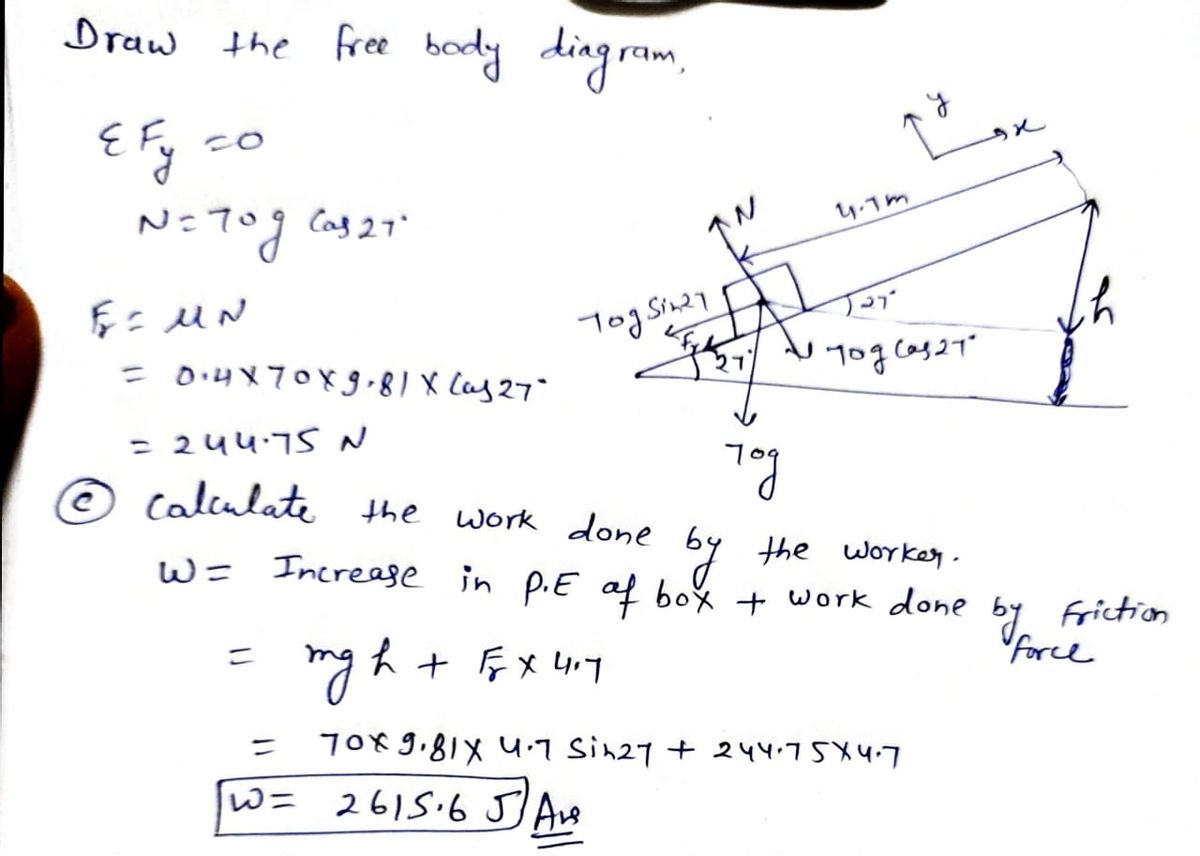 Draw the free body diagram,
ΣFy = 0
N = 70g Cos 27°
Fr = μN
= 0.4 x 70 x 9.81 x Cos 27°
= 244.75 N
y
x
4.7m
N
70g Sin27
Fr
27°
27°
70g Cos 27°
h
70g
(c) Calculate the work done by the worker.
W = Increase in P.E of box + work done by friction force
= mgh + Fr x 4.7
= 70 x 9.81 x 4.7 Sin27 + 244.75 x 4.7
W = 2615.6 J Ans